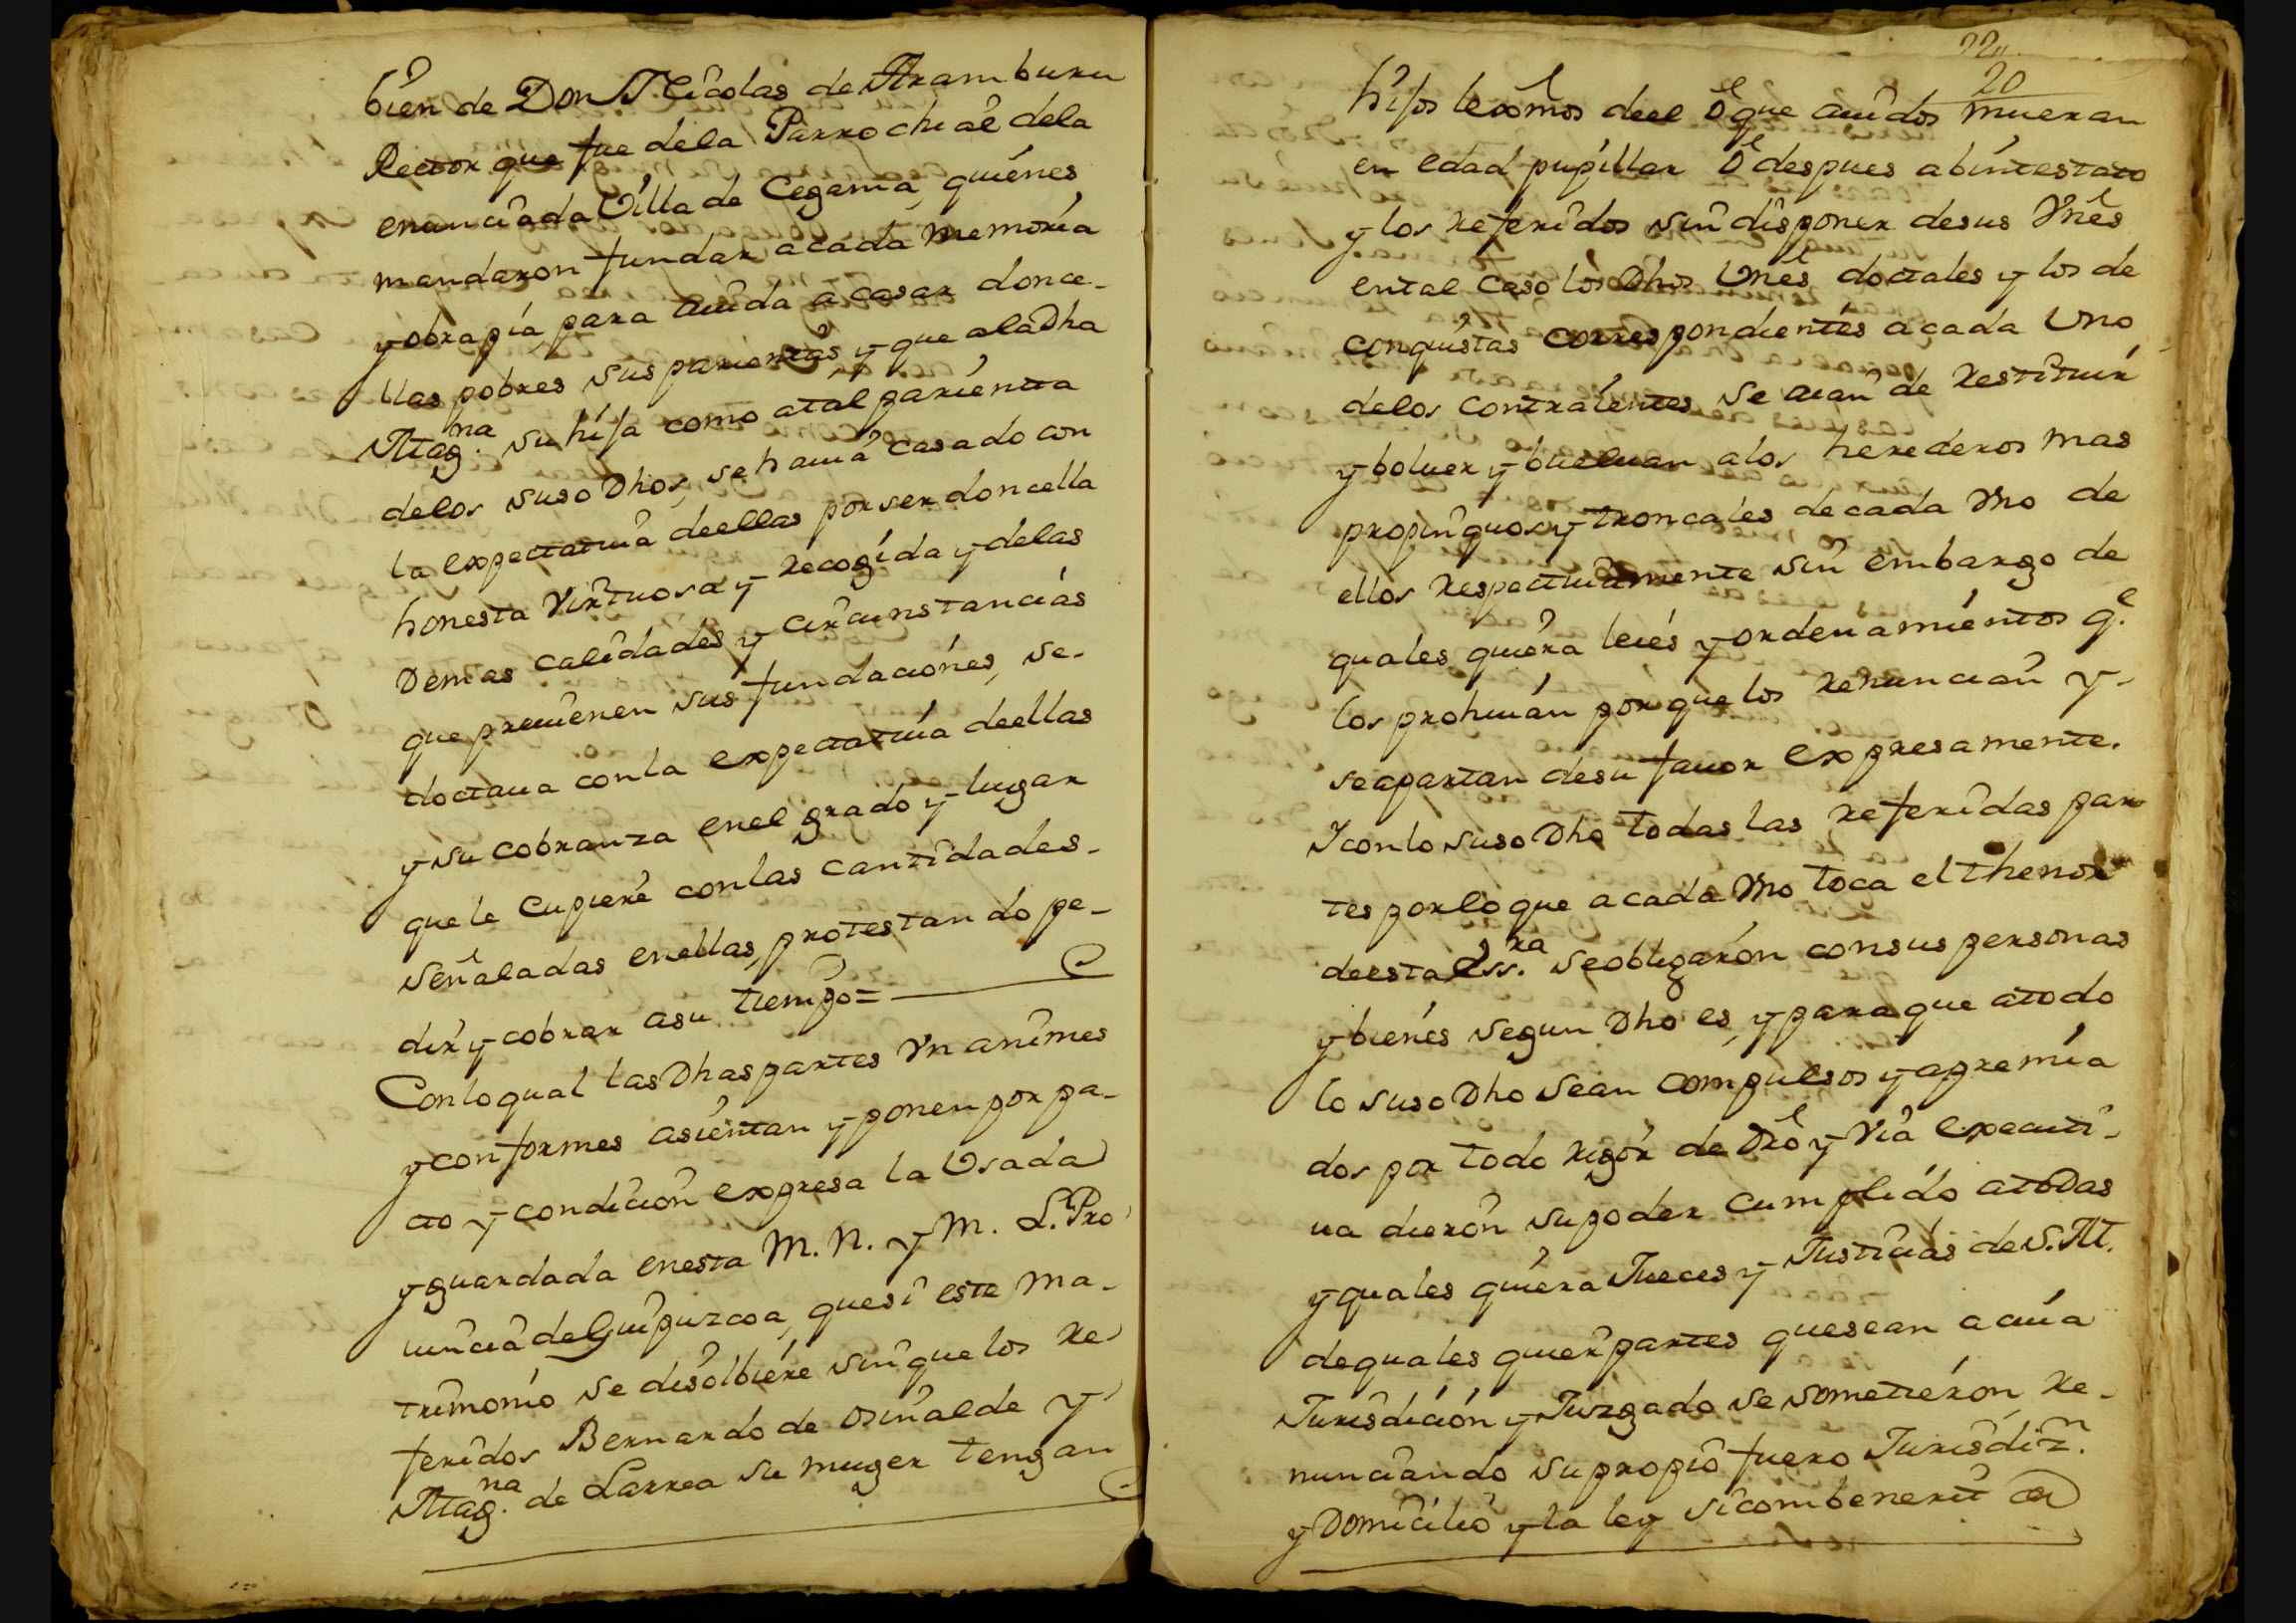 bien de Don Nicolas de Aramburu
Rector que fue dela Parrochiâl dela
enunciada Villa de Cegama, quiénes
mandaron fundar acada memoria
y obrapía para aiuda a casar donce-
llas pobres sus parientas, y que ala Dha
Mag.na su hija como atal parienta
delos suso Dhos, se hauia casado con
la expectatiua deellas por ser doncella
honesta Virtuosa y recogida y delas
Demas calidades y circunstancias
que preuienen sus fundaciónes, se-
doctaua conla expectatiua deellas
y su cobranza enel grado y lugar
quele cupiere conlas cantidades-
señaladas enellas, protestando pe-
dir y cobrar asu tiempo=
Conloqual las Dhas partes Vnanimes
y conformes asientan y ponen por pa-
cto y condicion expresa la Vsada
y guardada enesta M. N. y M. L. Pro
uincia de Guipuzcoa, quesi este ma-
trimonio se disolbiére sinque los re
feridos Bernardo de Osinalde y
Mag.na de Larrea su muger tengan
22
20
hijos lexmos deel ô que auidos mueran
en edad pupillar ô despues abintestato
y los referidos sin disponer desus Vnes
ental caso los Dhos Vnes doctales y los de
conquistas correspondientes acada Vno
delos contraientes se aian de restituir
y boluer y bueluan alos herederos mas
propinquos y troncales decada Vno de
ellos respectiuamente sin embargo de
quales quiera leiés y ordenamientos q.e
los prohiuan porquelos renuncian y
seapartan desu fauor expresamente.
Y conlo suso Dho todas las referidas par
tes porlo que acada Vno toca el thenor
deesta Ess.ra seobligarón consus personas
y bienés segun Dho es, y paraque atodo
lo suso Dho sean compulsos y apremia
dos por todo rigór de Dro y Via executi-
ua dierón su poder cumplido atodas
y quales quiera Jueces y Justicias de S. M.
dequales quier partes quesean acuia
Jurisdición y Juzgado se sometierón, re-
nunciando su propio fuero Jurisdiz.n
y Domicilio y la ley sicombenerit